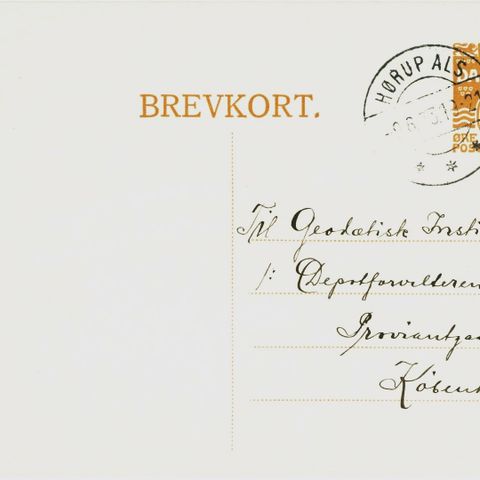 BREVKORT.
HØRUP ALS
ØRE
POS
Til Geodætisk Insti
/: Depotforvalteren
Proviantga
Københ